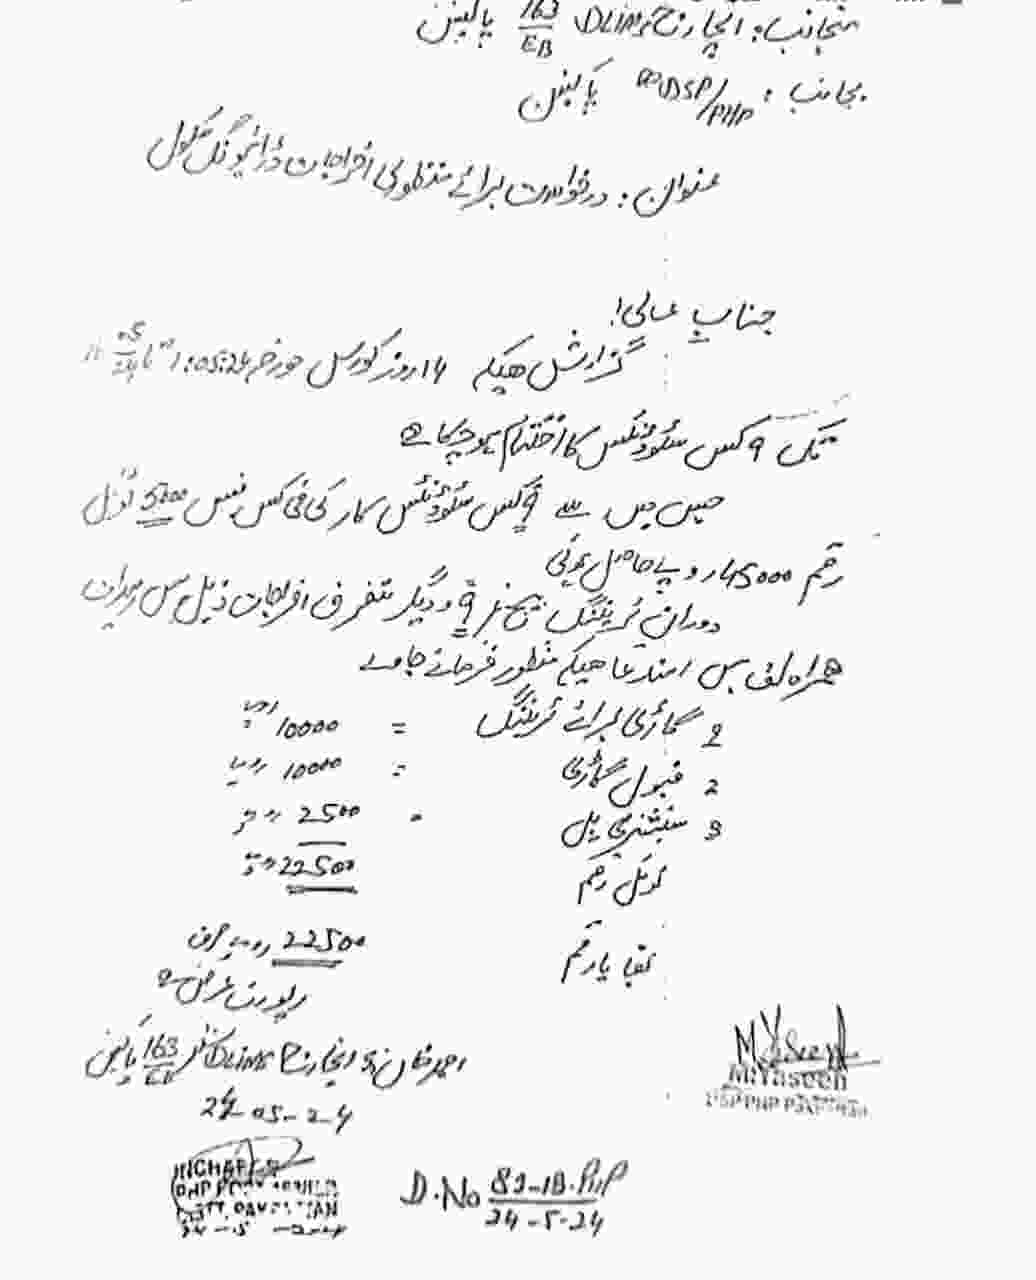 منجانب: انچارج DLIMS 163/EB پاکپتن
بجانب: DSP/PHP پاکپتن
عنوان: درخواست برائے منظوری اخراجات ڈرائیونگ سکول
جناب عالی!
گزارش ہیکہ 14 روز کورس مورخہ 05:24 تا 05/24
تک 9 کس سٹوڈنٹس کا اختتام ہو چکا ہے
جس میں سے 9 کس سٹوڈنٹس کار کی فی کس فیس 5000 ٹوٹل
رقم 45000 روپے حاصل ہوئی
دوران ٹریننگ بیج نمبر 9 و دیگر متفرق اخراجات ذیل ہیں
ہمراہ لف ہیں استدعا ہیکہ منظور فرمائے جاوے
گاڑی برائے ٹریننگ = 10000 روپے
2 فیول گاڑی = 10000 روپے
3 سٹیشنری بل = 2500
ٹوٹل رقم 22500
بقایا رقم 22500 روپے صرف
رپورٹ عرض ہے
احمد خان انچارج DLIMS سنٹر 163/EB پاکپتن
24-05-24
M.Yaseen
M.Yaseen
DSP PHP PAKPATTAN
INCHARGE
PHP POST
DISTT. PAKPATTAN
D.No 82-1B.PHP
24-5-24